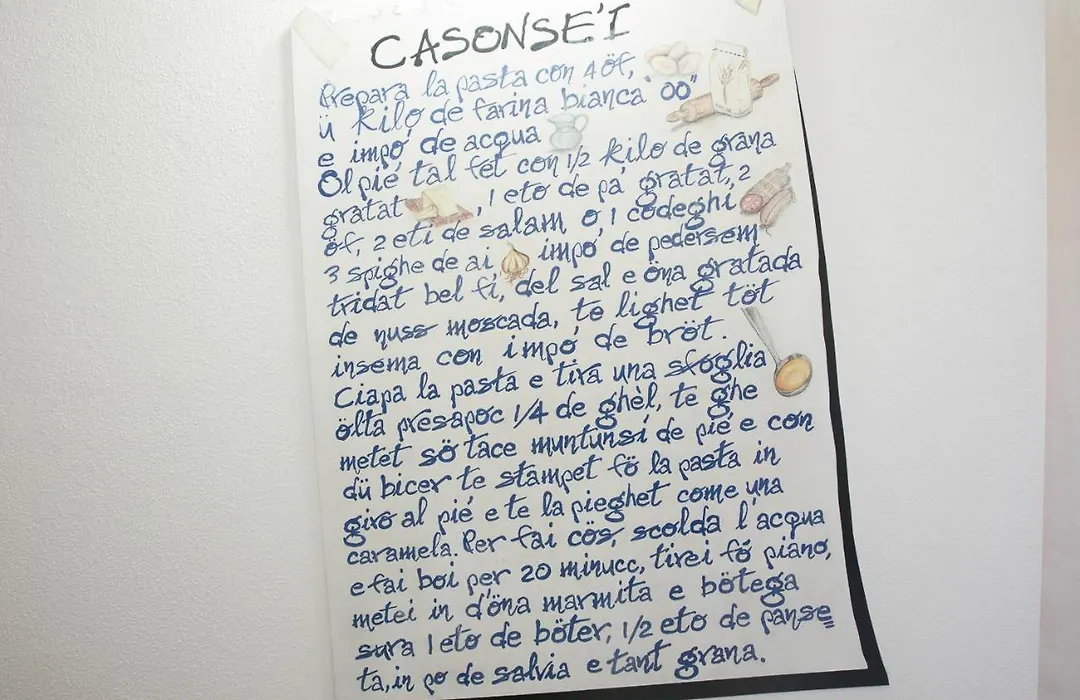 CASONSE'I
Prepara la pasta con 4 öf,
ü kilo de farina bianca "00"
e impó de acqua
Ol pié tal fét con 1/2 kilo de grana
gratat , 1 eto de pà gratat, 2
öf, 2 eti de salam o, 1 codeghi
3 spighe de ai, impó de pedersem
tridat bel fi, del sal e öna gratada
de nuss moscada, te lighet töt
insema con impó de bröt.
Ciapa la pasta e tira una sfoglia
ölta presapoc 1/4 de ghèl, te ghe
metet sö tace muntunsí de pié e con
dü bicer te stampet fö la pasta in
giro al pié e te la pieghet come una
caramela. Per fai cös, scolda l'acqua
e fai boi per 20 minucc, tirei fö piano,
metei in d'öna marmita e bötega
sura 1 eto de böter, 1/2 eto de panse
ta, in po de salvia e tant grana.